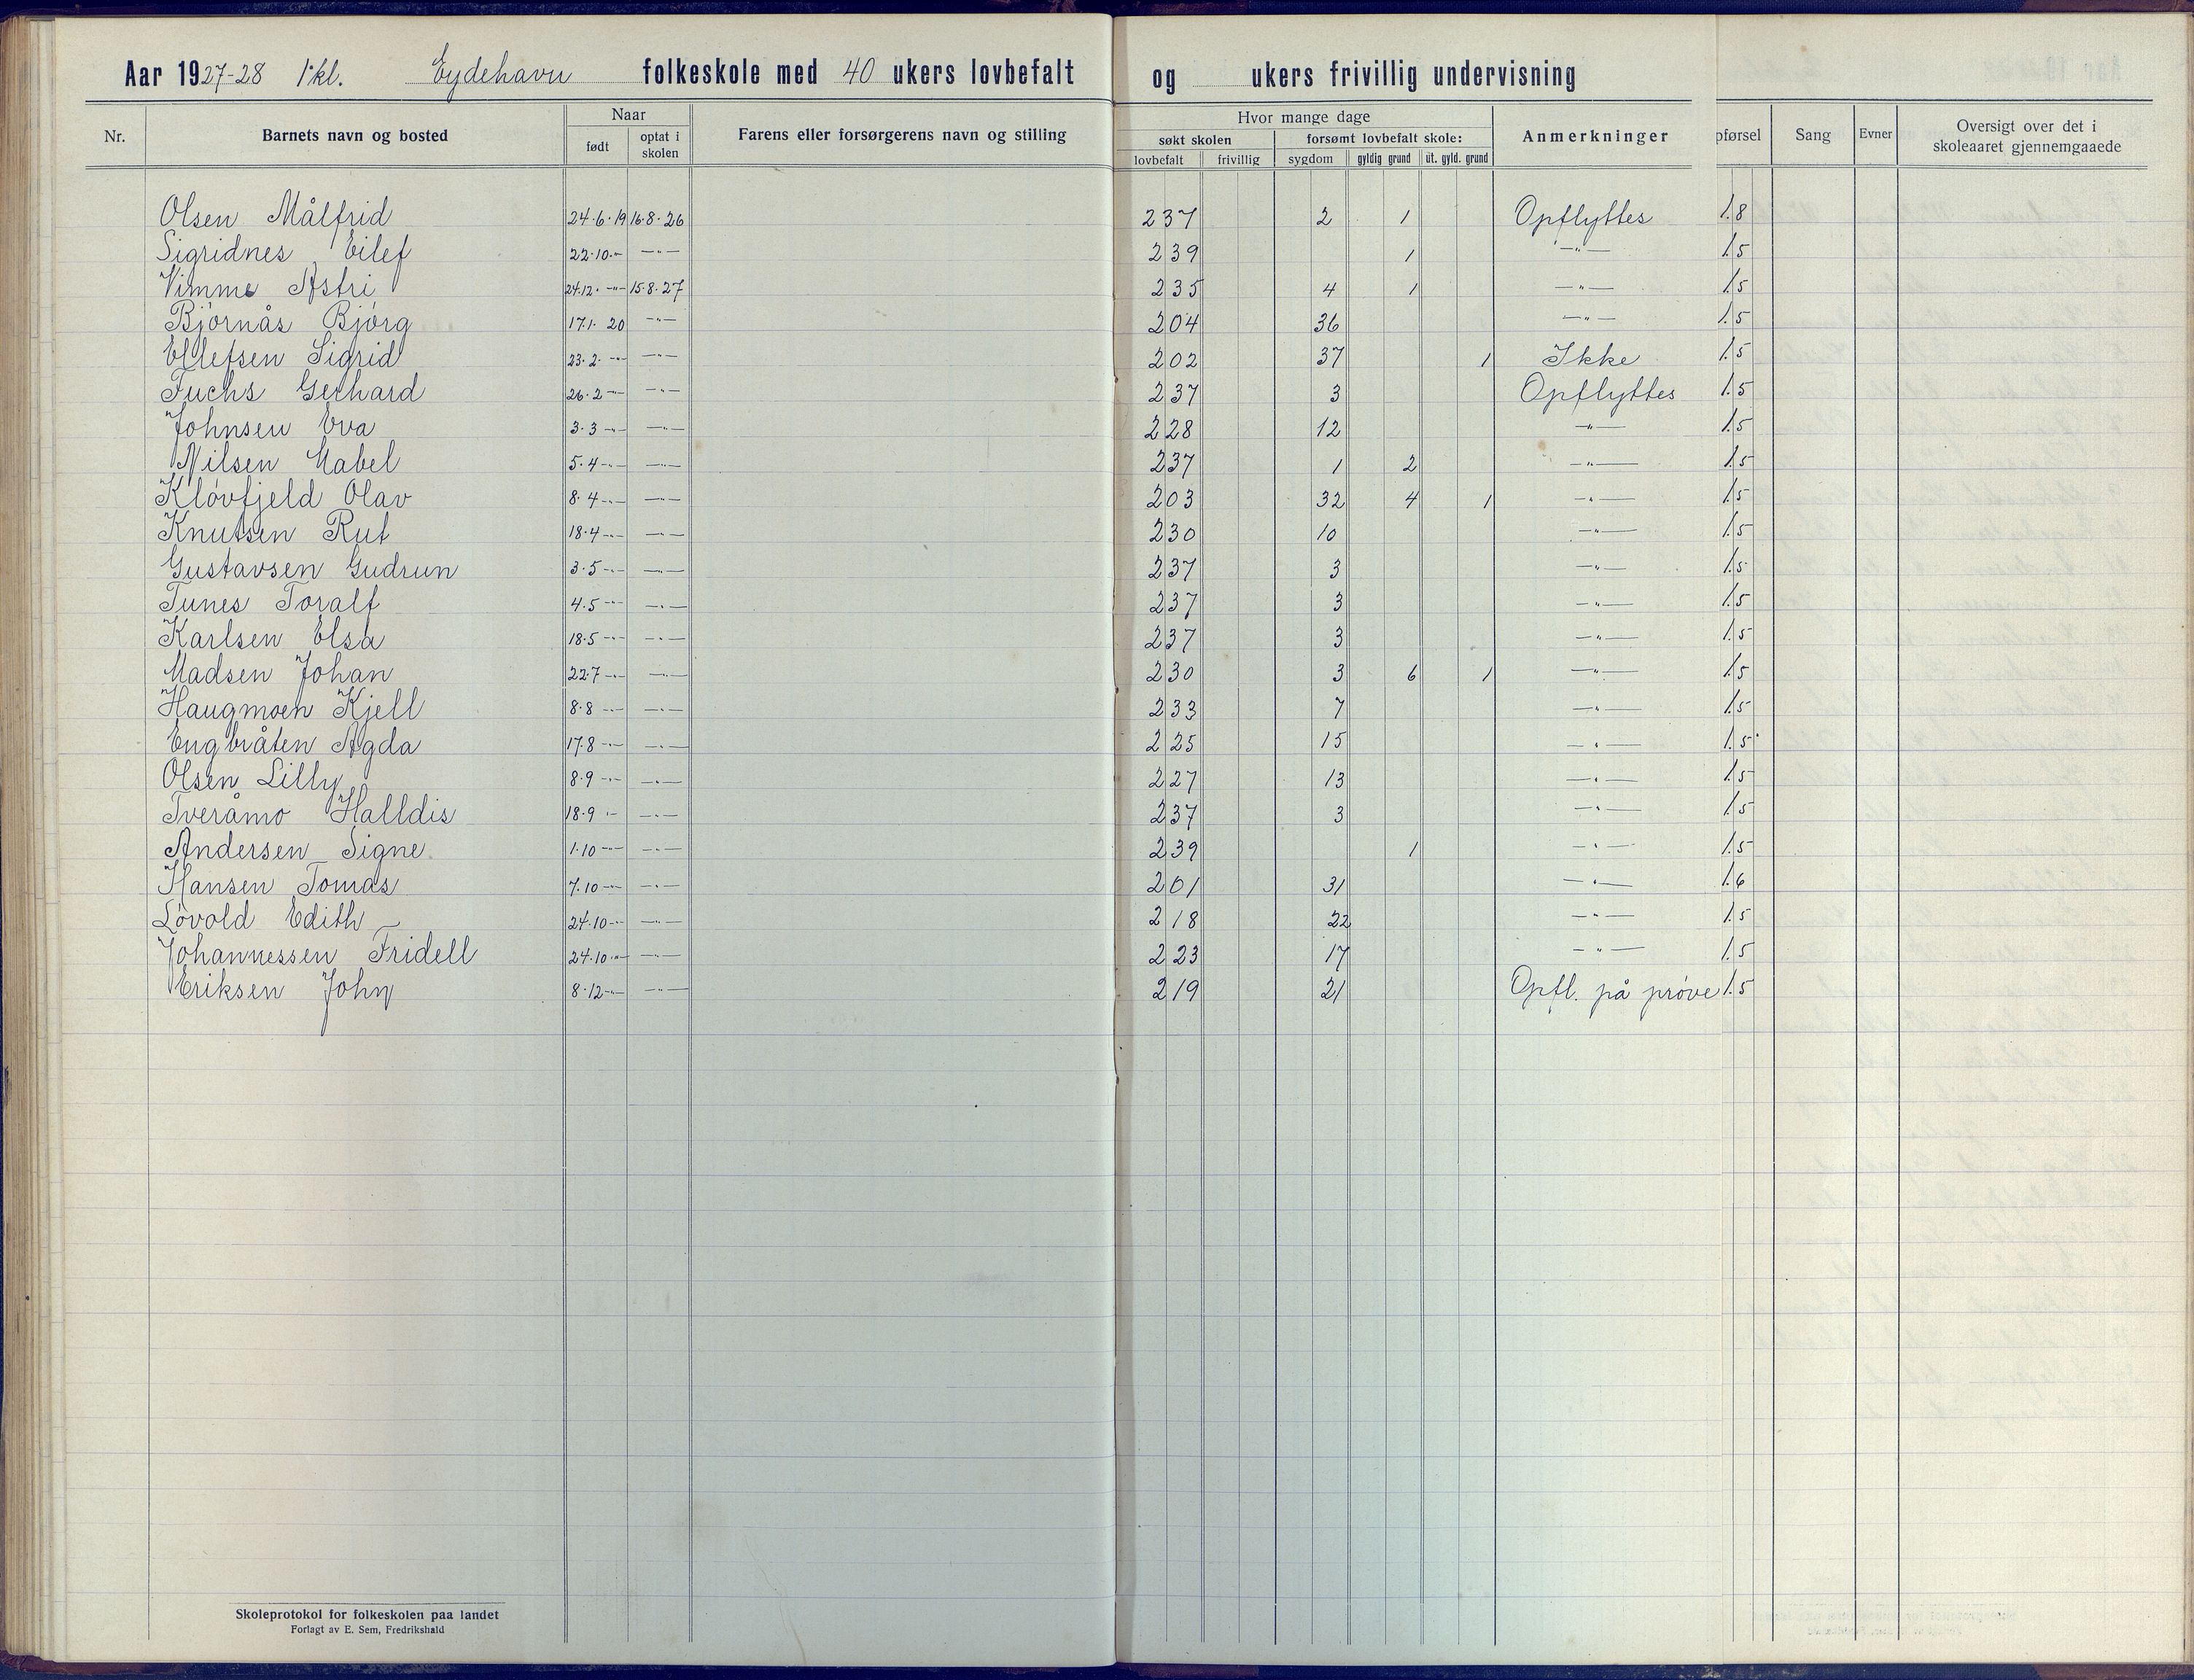 Aar 1927-28 1kl. Eydehavn folkeskole med 40 ukers lovbefalt og ukers frivillig undervisning
Nr. Barnets navn og bosted Naar født optat i skolen Farens eller forsørgerens navn og stilling Hvor mange dage søkt skolen lovbefalt frivillig forsømt lovbefalt skole: sygdom gyldig grund ut. gyld. grund Anmerkninger pførsel Sang Evner Oversigt over det i skoleaaret gjennemgaaede
Olsen Målfrid 24.6.19 16.8.26 237 2 1 Opflyttes 1.8
Sigridnes Eilef 22.10.- —"— 239 1 —"— 1.5
Vimme Astri 24.12. -"- 15.8.27 235 4 1 —"— 1.5
Bjørnås Bjørg 17.1. 20 —"— 204 36 —"— 1.5
Ellefsen Sigrid 23.2. -"- —"— 202 37 1 Ikke 1.5
Fuchs Gerhard 26.2 -"- —"— 237 3 Opflyttes 1.5
Johnsen Eva 3.3 -"- —"— 228 12 —"— 1.5
Nilsen Mabel 5.4 -"- —"— 237 1 2 —"— 1.5
Kløvfjeld Olav 8.4 -"- —"— 203 32 4 1 —"— 1.5
Knutsen Rut 18.4 -"- —"— 230 10 —"— 1.5
Gustavsen Gudrun 3.5 -"- —"— 237 3 —"— 1.5
Tunes Toralf 4.5 -"- —"— 237 3 —"— 1.5
Karlsen Elsa 18.5 -"- —"— 237 3 —"— 1.5
Madsen Johan 22.7 -"- —"— 230 3 6 1 —"— 1.5
Haugmoen Kjell 8.8 -"- —"— 233 7 —"— 1.5
Engbråten Agda 17.8 -"- —"— 225 15 —"— 1.5
Olsen Lilly 8.9 -"- —"— 227 13 —"— 1.5
Tveråmo Halldis 18.9 "- —"— 237 3 —"— 1.5
Andersen Signe 1.10 -"- —"— 239 1 —"— 1.5
Hansen Tomas 7.10 -"- —"— 201 31 —"— 1.6
Løvold Edith 24.10 -"- —"— 218 22 —"— 1.5
Johannessen Fridell 24.10 -"- —"— 223 17 —"— 1.5
Eriksen John 8.12 -"- —"— 219 21 Opfl. på prøve 1.5
Skoleprotokol for folkeskolen paa landet
Forlagt av E. Sem, Fredrikshald